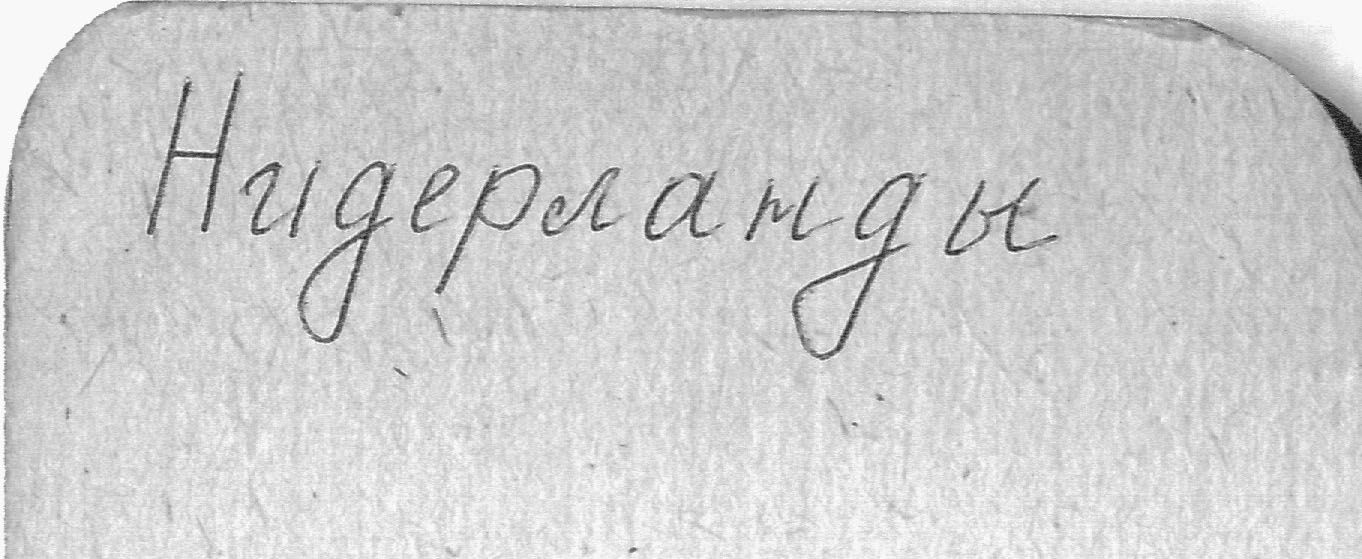 Нидерланды